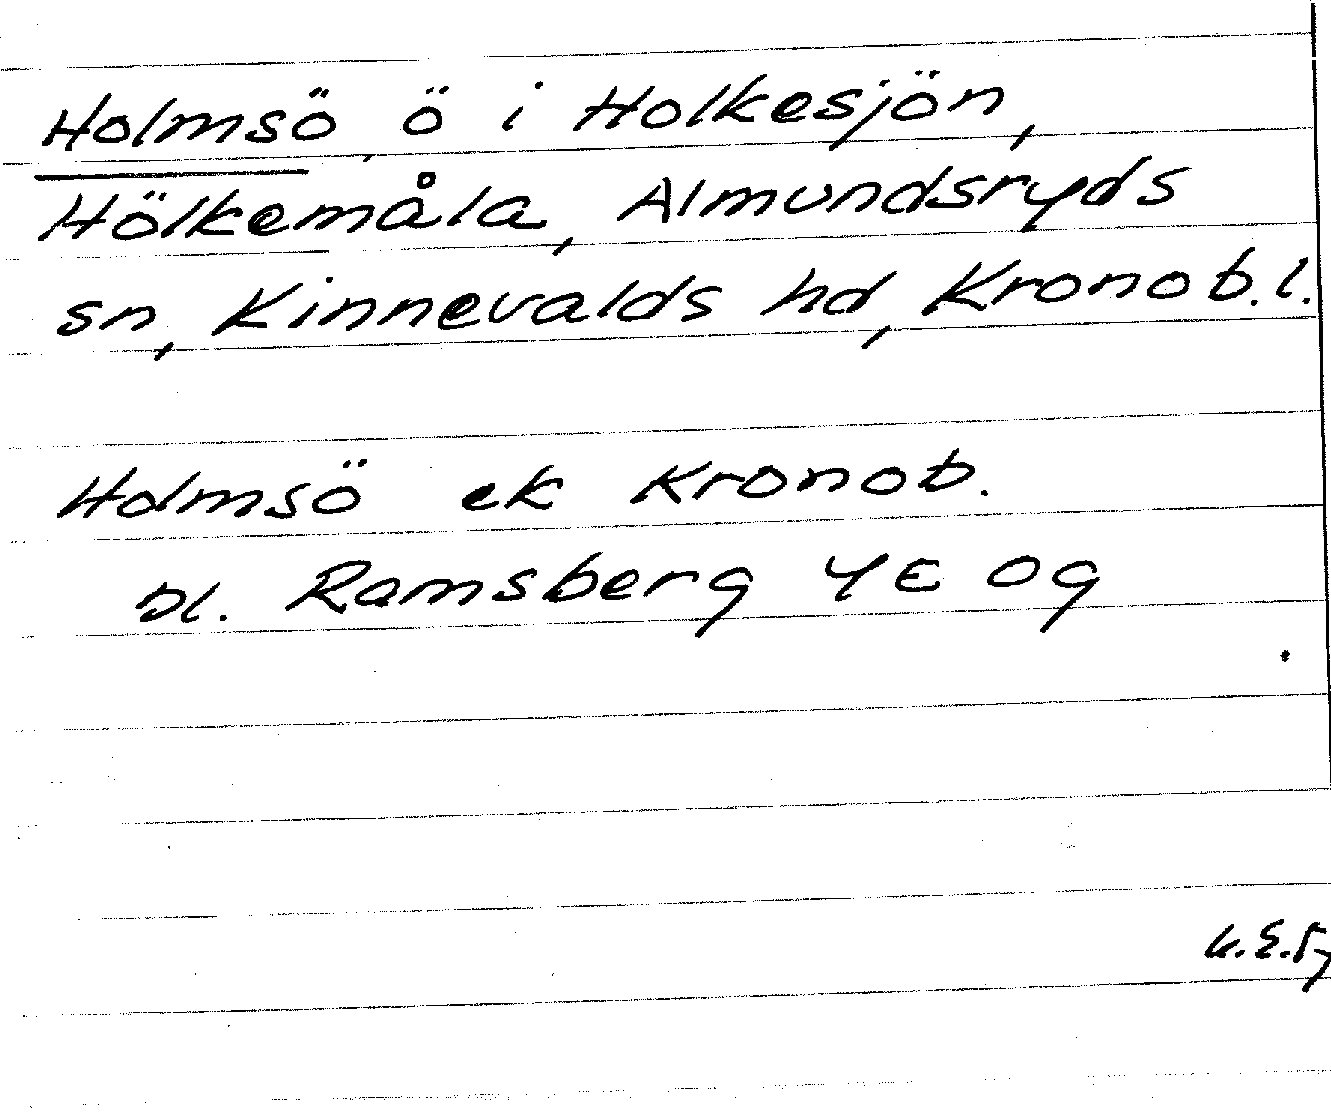 Holmsö, ö i Holkesjön,
Hölkemåla, Almundsryds
sn, Kinnevalds hd, Kronob.l.
Holmsö ek Kronob.
bl. Ramsberg 4E 0g